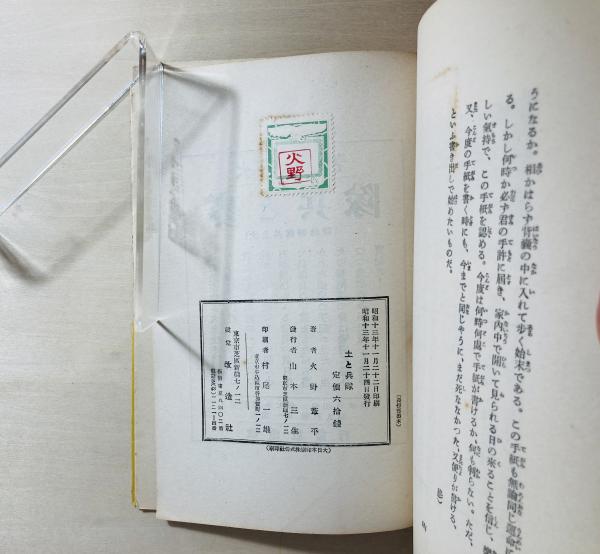 うになるか。相かはらず背嚢の中に入れて歩く始末である。この手紙も無論同じ運命
る。しかし何時か必ず君の手許に届き、家内中で開いて見られる日の来ることを信じ、
しい氣持で、この手紙を認める。今度は何時何處で手紙が書けるか、何も判らない。ただ、
又、今度の手紙を書く時にも、今までと同じやうに、まだ死ななかつた、又便りが書ける、
といふ書き出しで始めたいものだ。
火野
昭和十三年十一月二十二日印刷
昭和十三年十一月二十四日發行
土と兵隊
定價六拾錢
著者 火野葦平
發行者 山本三生
東京市芝區新橋七ノ一二
印刷者
一雄
東京市芝區新橋七ノ一二
發兌 改造社